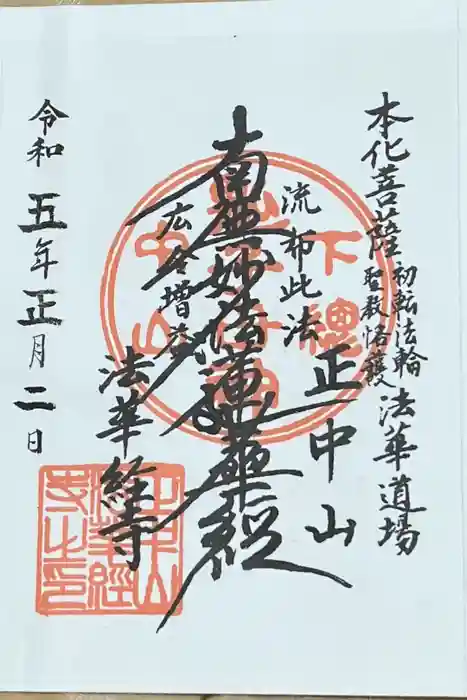 本化菩薩初転法輪聖教恪護法華道場
正中山
流布此法
南無妙法蓮華経
広令増益
法華経寺
令和五年正月二日